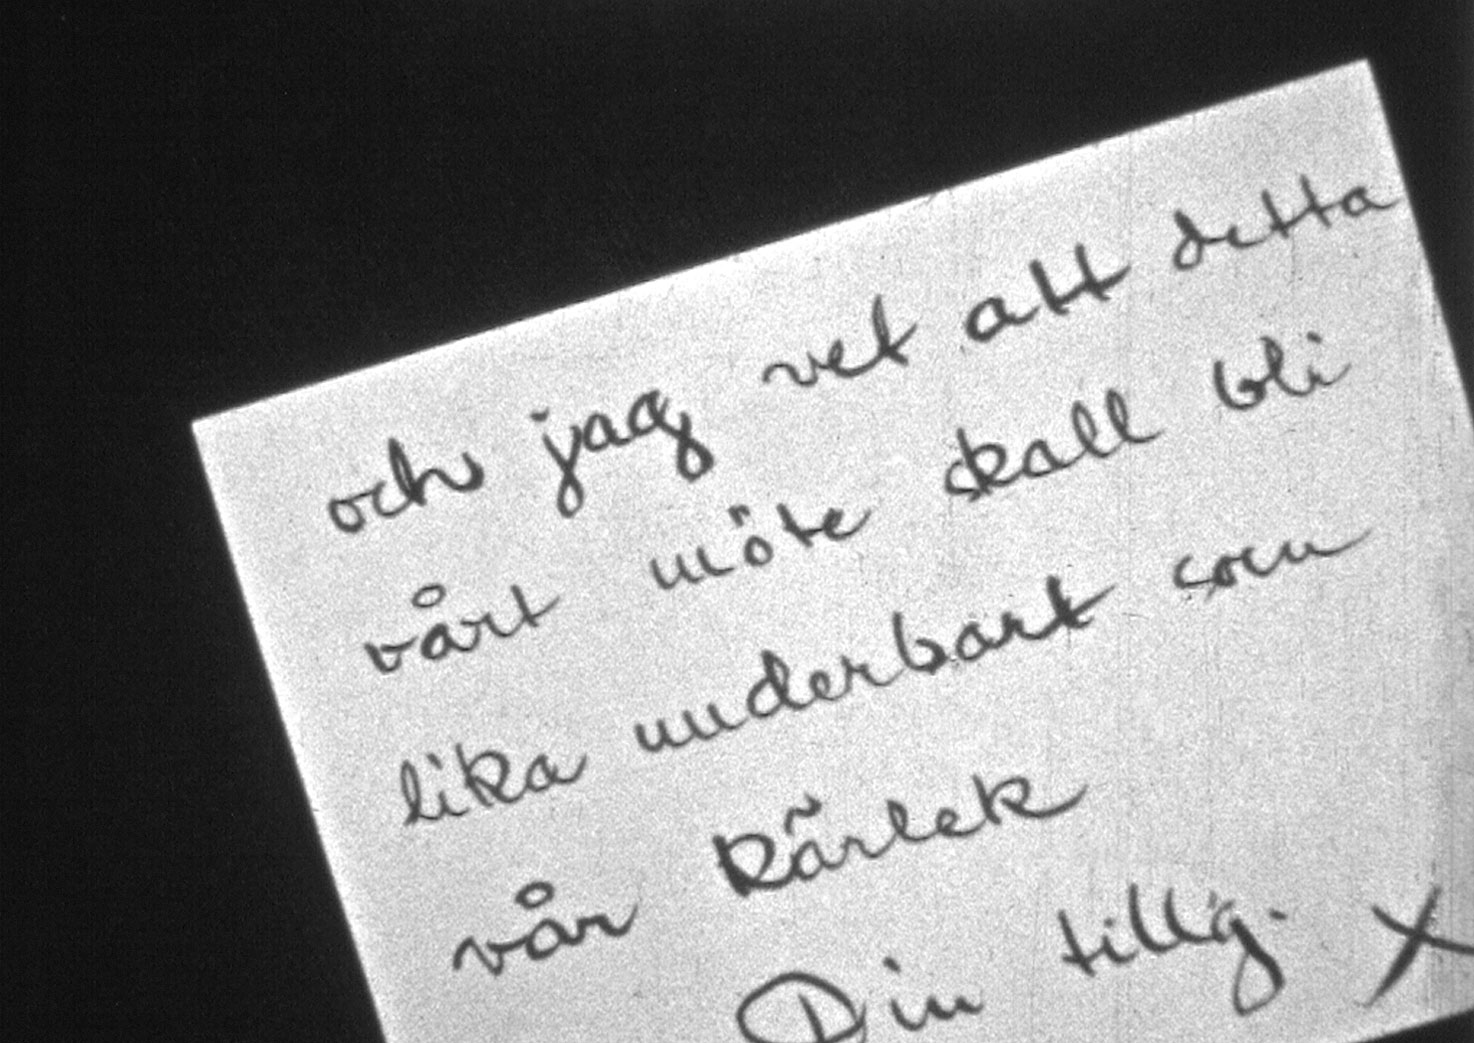 och jag vet att detta
vårt möte skall bli
lika underbart som
vår kärlek
Din tillg. X